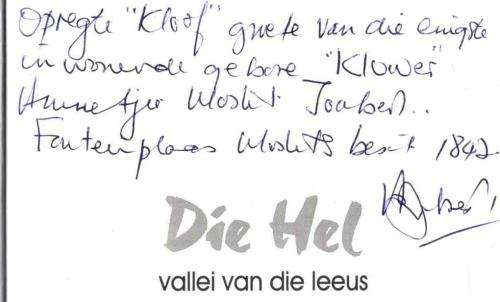 Opregte "Kloof" groete van die enigste
inwonende gebore "Kluwer"
Annetjie Mostert Joubert..
Fonteinplaas Mosterts besit 1842.
Die Hel
vallei van die leeus